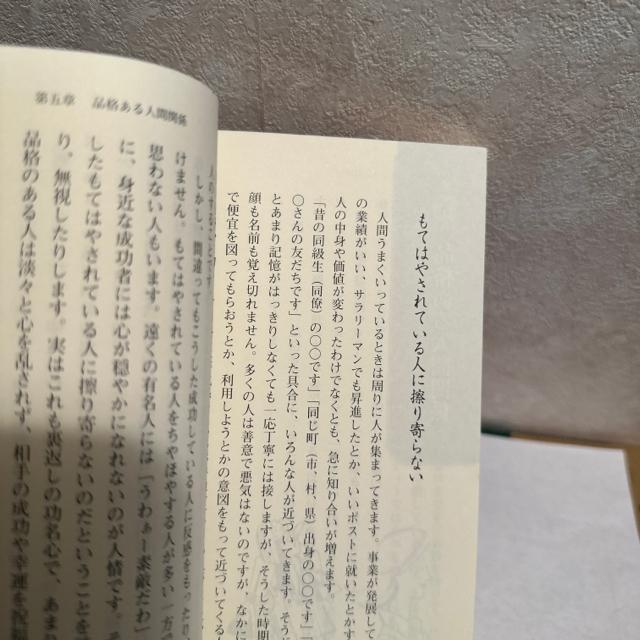 もてはやされている人に擦り寄らない
人間うまくいっているときは周りに人が集まってきます。事業が発展して
の業績がいい、サラリーマンでも昇進したとか、いいポストに就いたとかす
人の中身や価値が変わったわけでなくとも、急に知り合いが増えます。
「昔の同級生（同僚）の〇〇です」「同じ町（市、村、県）出身の〇〇です」
〇さんの友だちです」といった具合に、いろんな人が近づいてきます。そう
とあまり記憶がはっきりしなくても一応丁寧には接しますが、そうした時期
顔も名前も覚え切れません。多くの人は善意で悪気はないのですが、なかに
で便宜を図ってもらおうとか、利用しようとかの意図をもって近づいてくる
第五章 品格ある人間関係
しかし、間違ってもこうした成功している人に反感をもったり、
けません。もてはやされている人をちやほやする人が多い一方で
思わない人もいます。遠くの有名人には「うわぁー素敵だわ」
に、身近な成功者には心が穏やかになれないのが人情です。そ
したもてはやされている人に擦り寄らないのだということを
り、無視したりします。実はこれも裏返しの功名心で、あま
品格のある人は淡々と心を乱されず、相手の成功や幸運を祝福